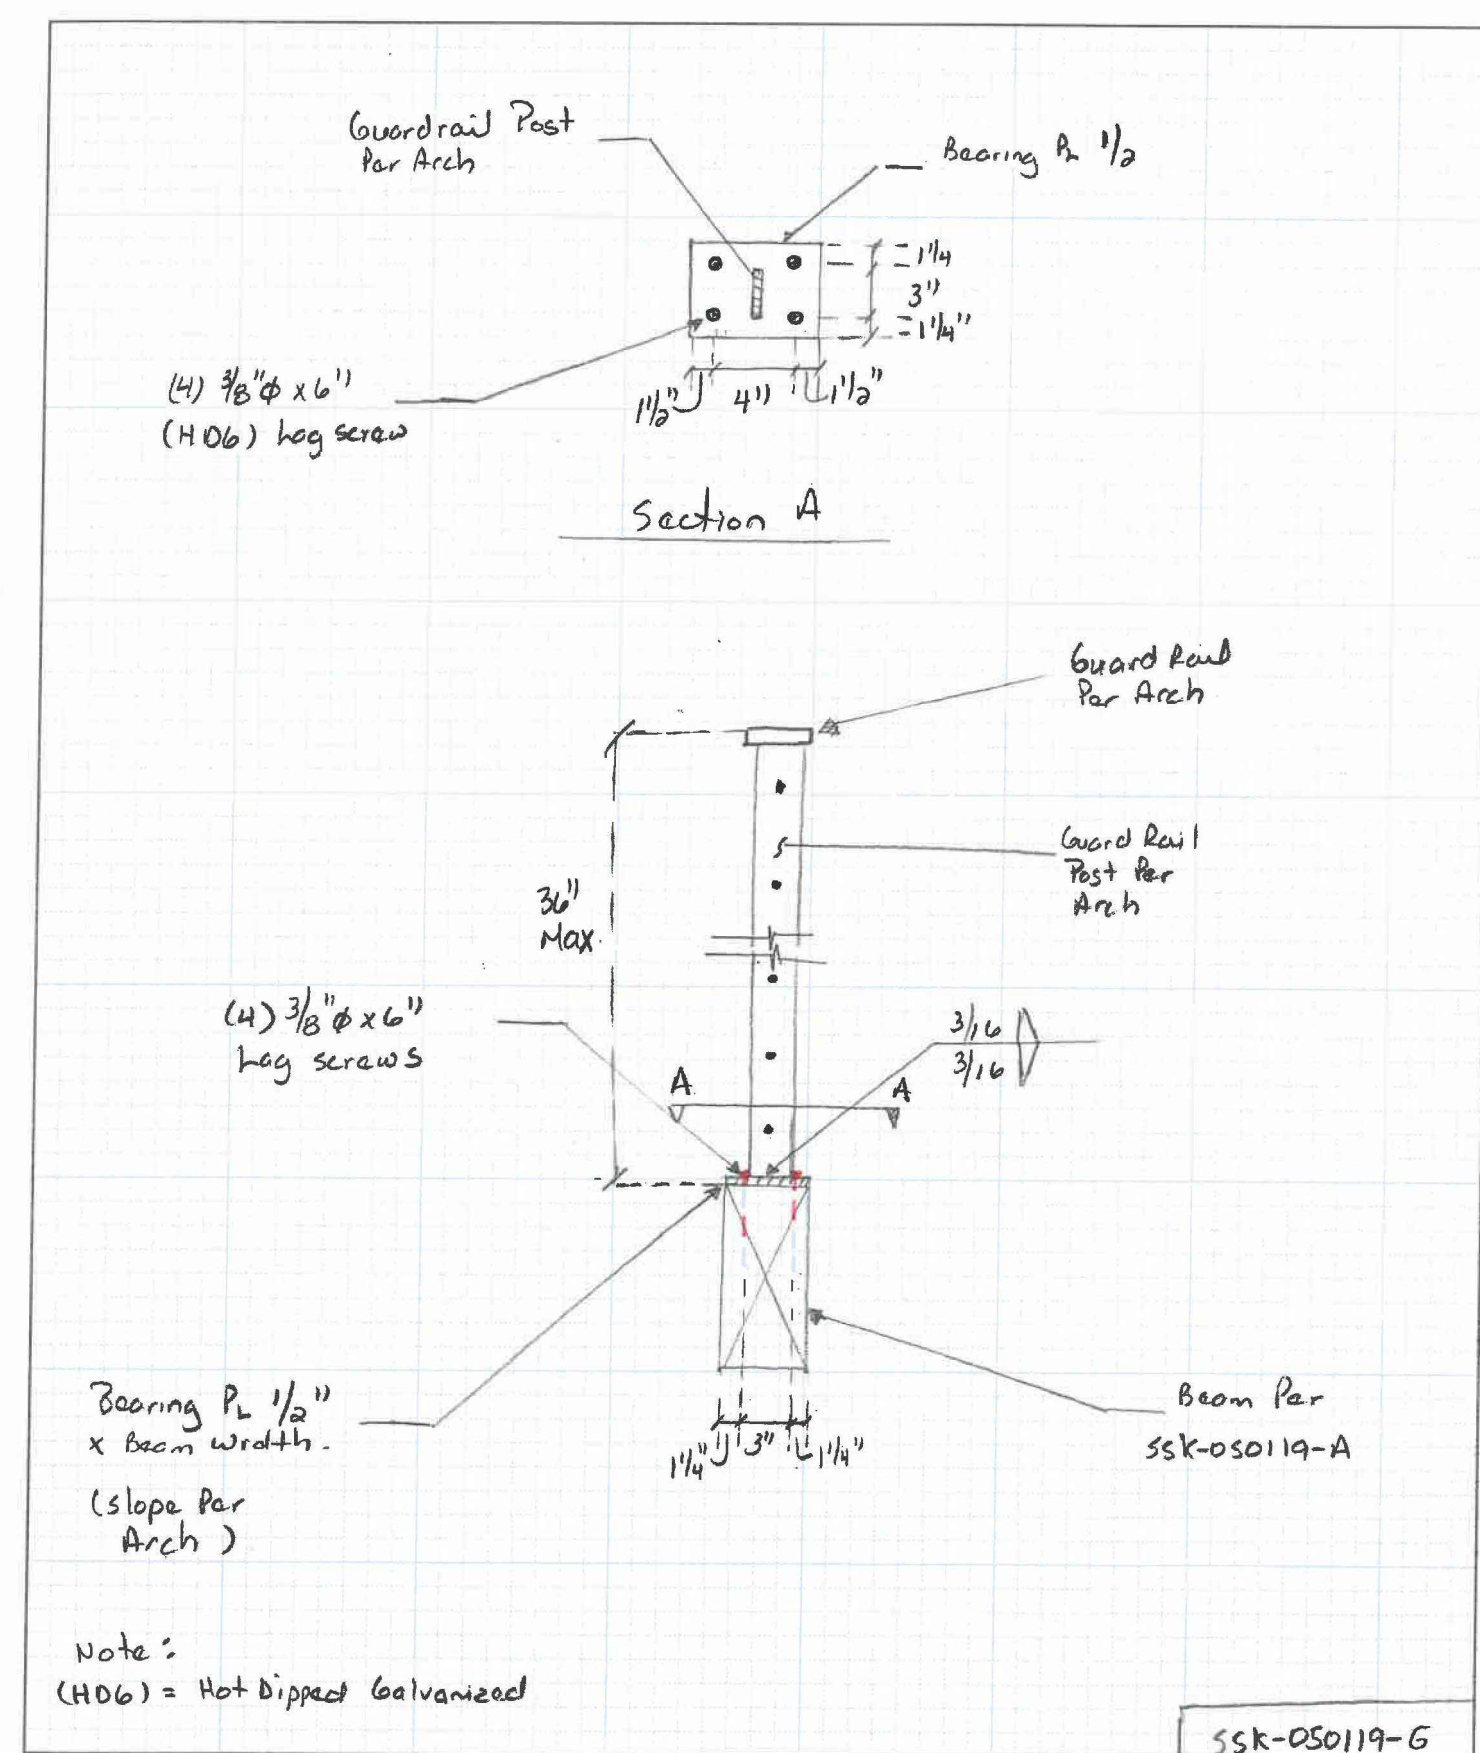 Guardrail Post
Per Arch
Bearing PL 1/2
1 1/4
3"
1 1/4"
(4) 3/8"φ x 6"
(HDG) Lag screw
1 1/2"
4"
1 1/2"
Section A
Guard Rail
Per Arch
Guard Rail
Post Per
Arch
36"
Max.
(4) 3/8"φ x 6"
Lag screws
3/16
3/16
A
A
Bearing PL 1/2"
x Beam width.
(slope Per
Arch)
1 1/4"
3"
1 1/4"
Beam Per
SSK-050119-A
Note:
(HDG) = Hot Dipped Galvanized
SSK-050119-G